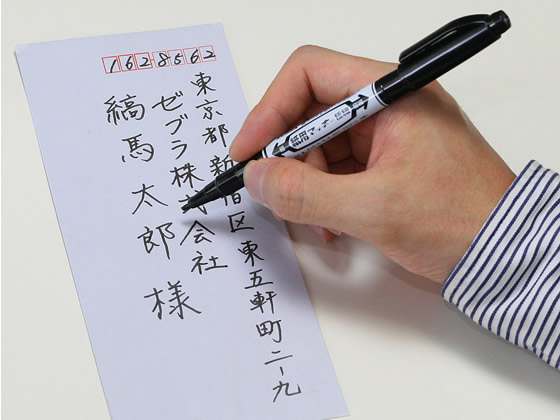 1628562
東京都新宿区東五軒町二ー九
ゼブラ株式会社
縞馬太郎様